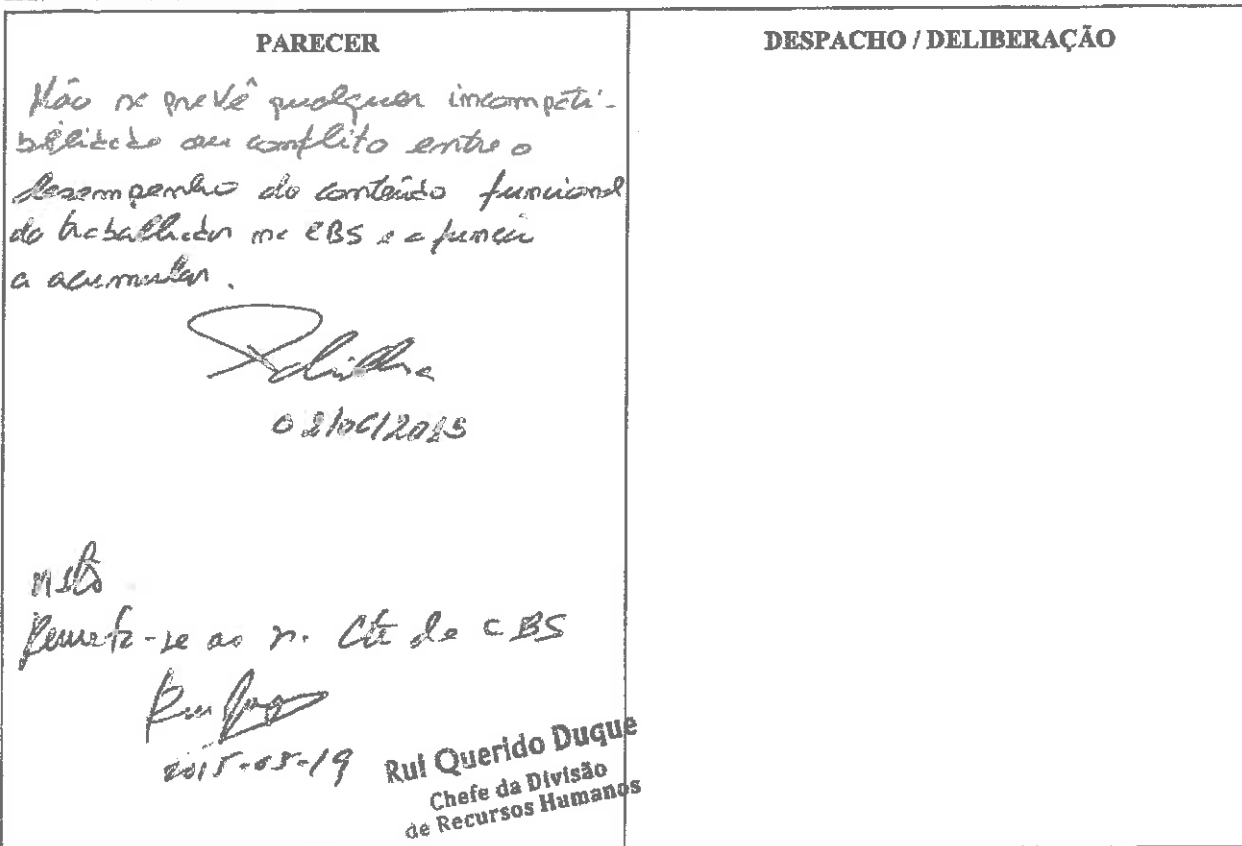 PARECER
Não se prevê qualquer incompati-
bilidade ou conflito entre o
desempenho do conteúdo funcional
do trabalhador na CBS e a função
a acumular.
02/06/2015
Visto
Remeta-se ao Sr. Cte da CBS
2015-05-19
Rui Querido Duque
Chefe da Divisão
de Recursos Humanos
DESPACHO / DELIBERAÇÃO